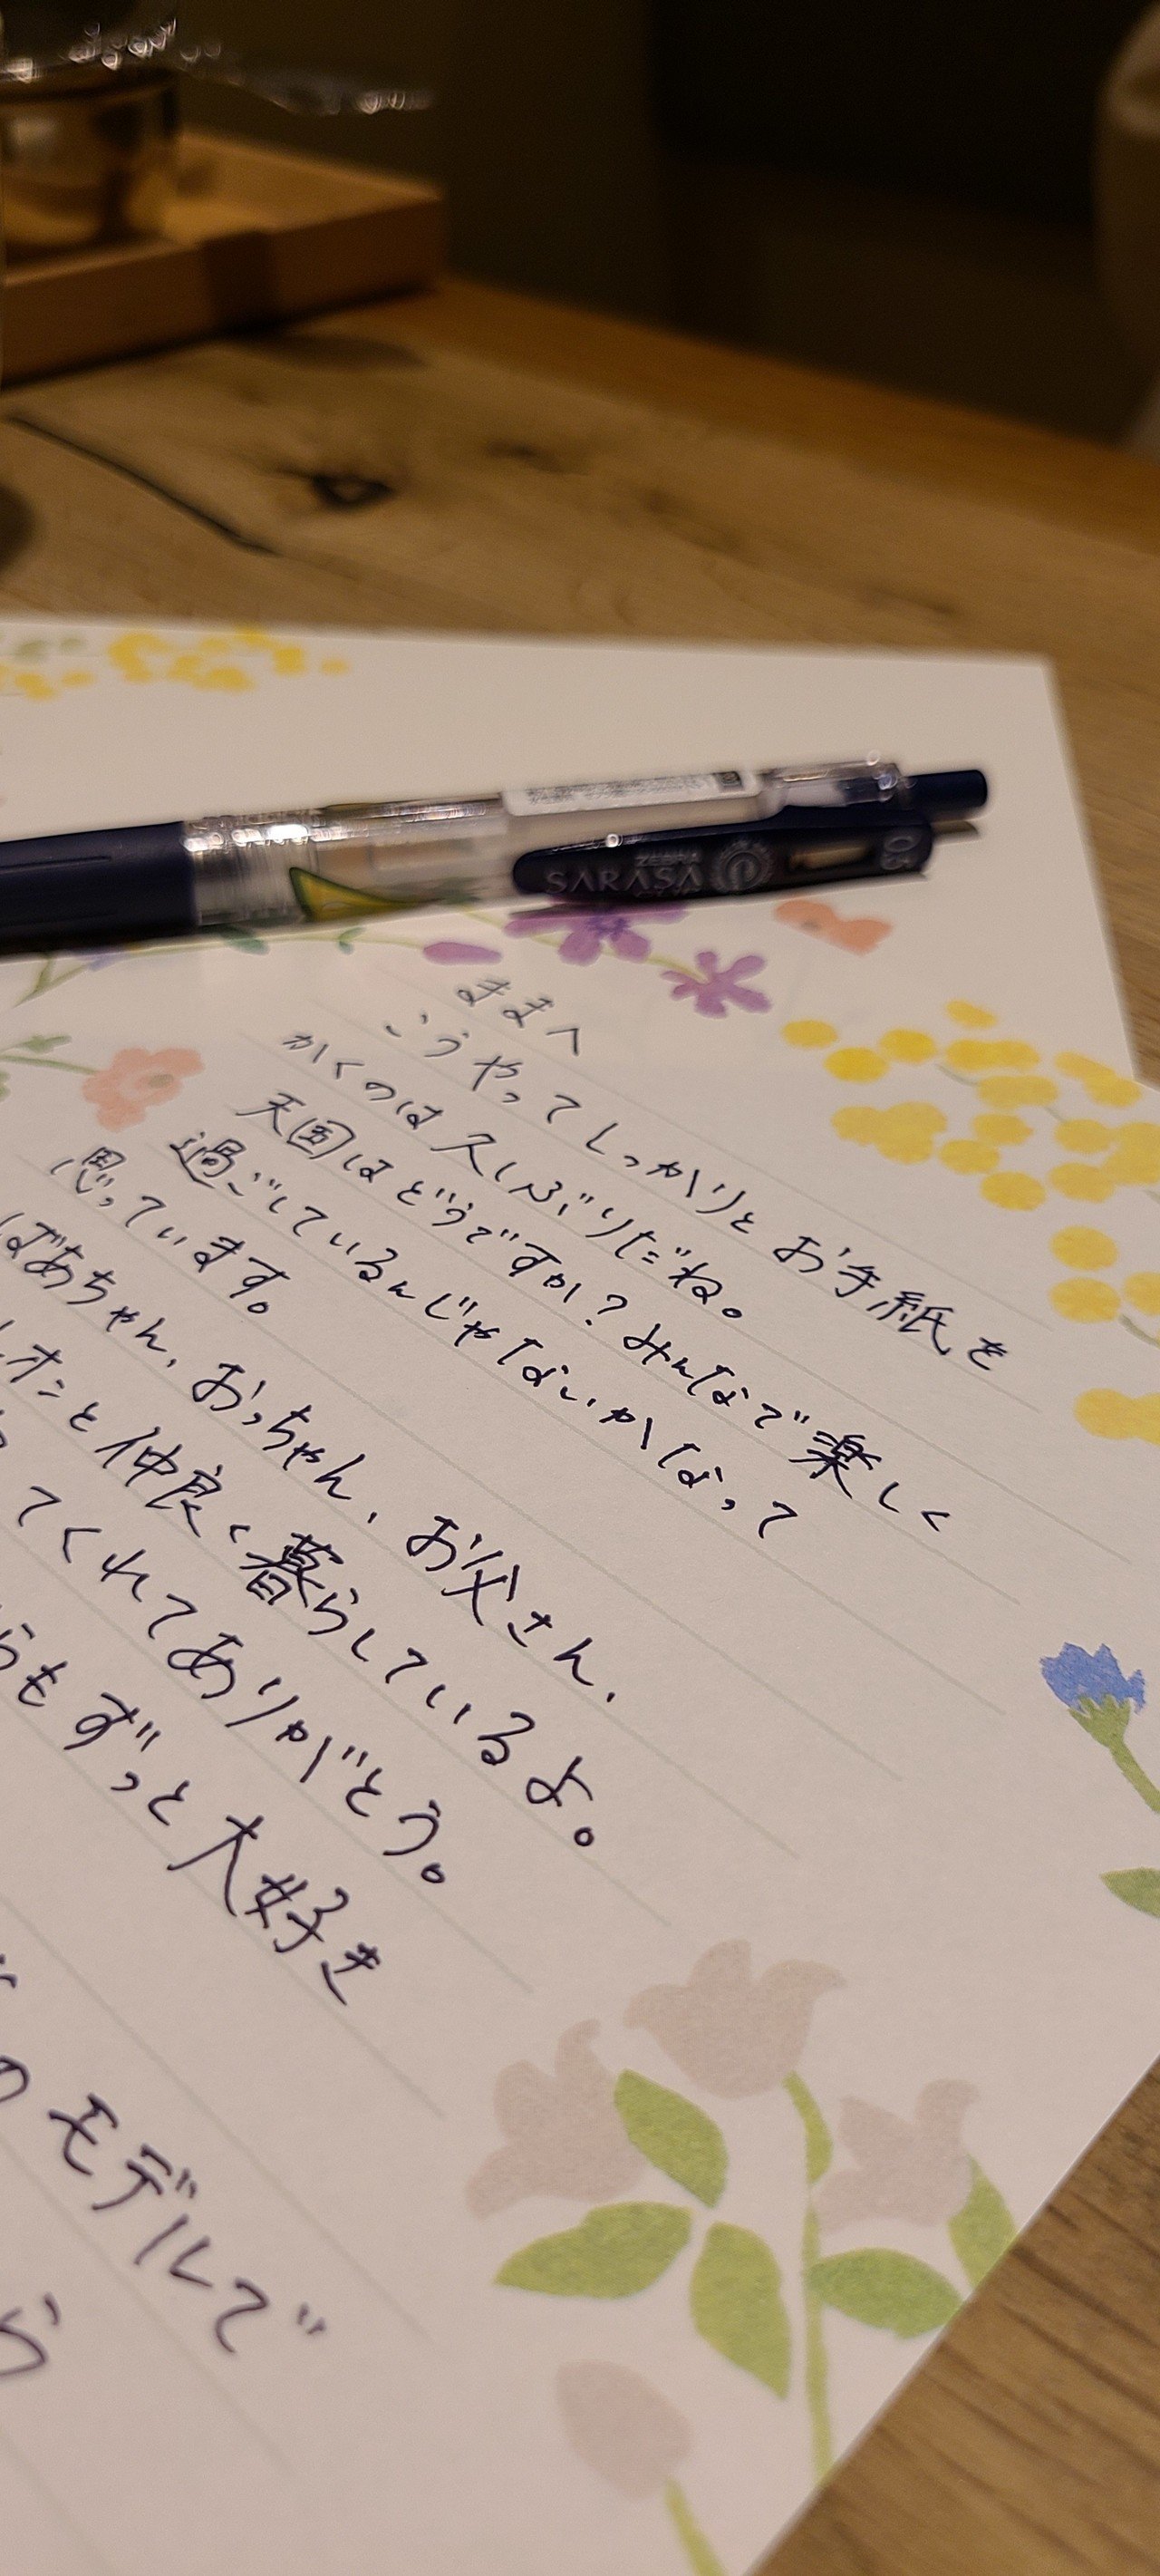 ZEBRA
SARASA
0.5
ままへ
こうやってしっかりとお手紙を
かくのは久しぶりだね。
天国はどうですか？みんなで楽しく
過ごしているんじゃないかなって
思っています。
ばあちゃん、おっちゃん、お父さん、
と仲良く暮らしているよ。
てくれてありがとう。
らもずっと大好き
のモデルで